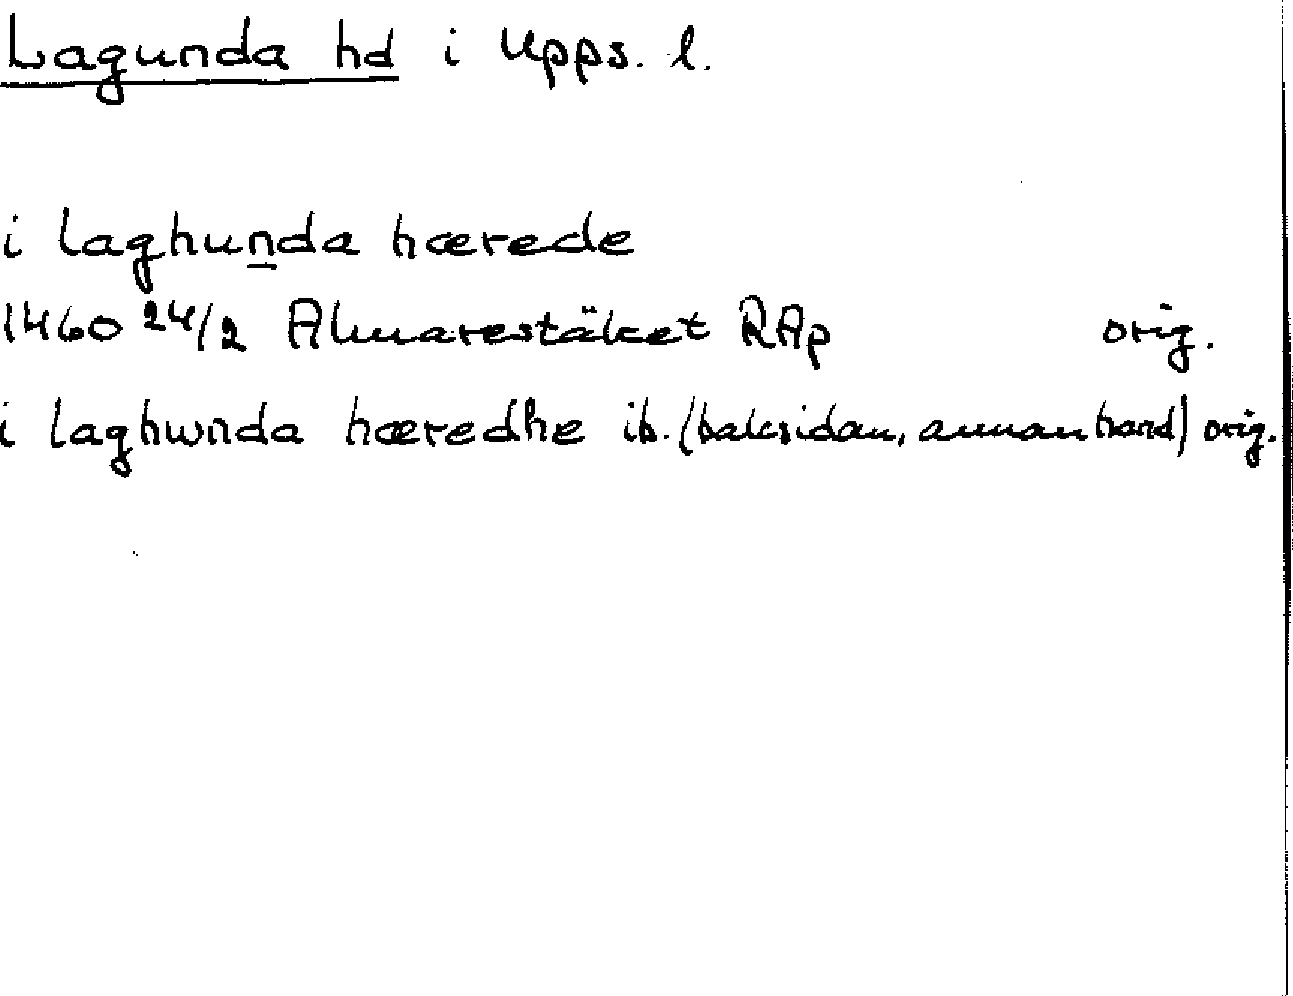 Lagunda hd i Upps. l.
i laghunda hærede
1460 24/2 Almarestäket RAp orig.
i laghwnda hæredhe ib. (baksidan, annan hand) orig.